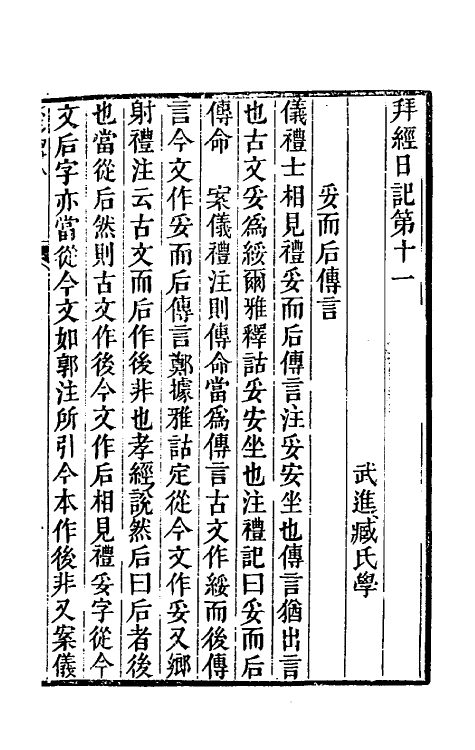 拜經日記第十一
武進臧氏學
妥而后傳言
儀禮士相見禮妥而后傳言注妥安坐也傳言猶出言
也古文妥爲綏爾雅釋詁妥安坐也注禮記曰妥而后
傳命　案儀禮注則傳命當爲傳言古文作綏而後傳
言今文作妥而后傳言鄭據雅詁定從今文作妥又鄉
射禮注云古文而后作後非也孝經說然后曰后者後
也當從后然則古文作後今文作后相見禮妥字從今
文后字亦當從今文如郭注所引今本作後非又案儀